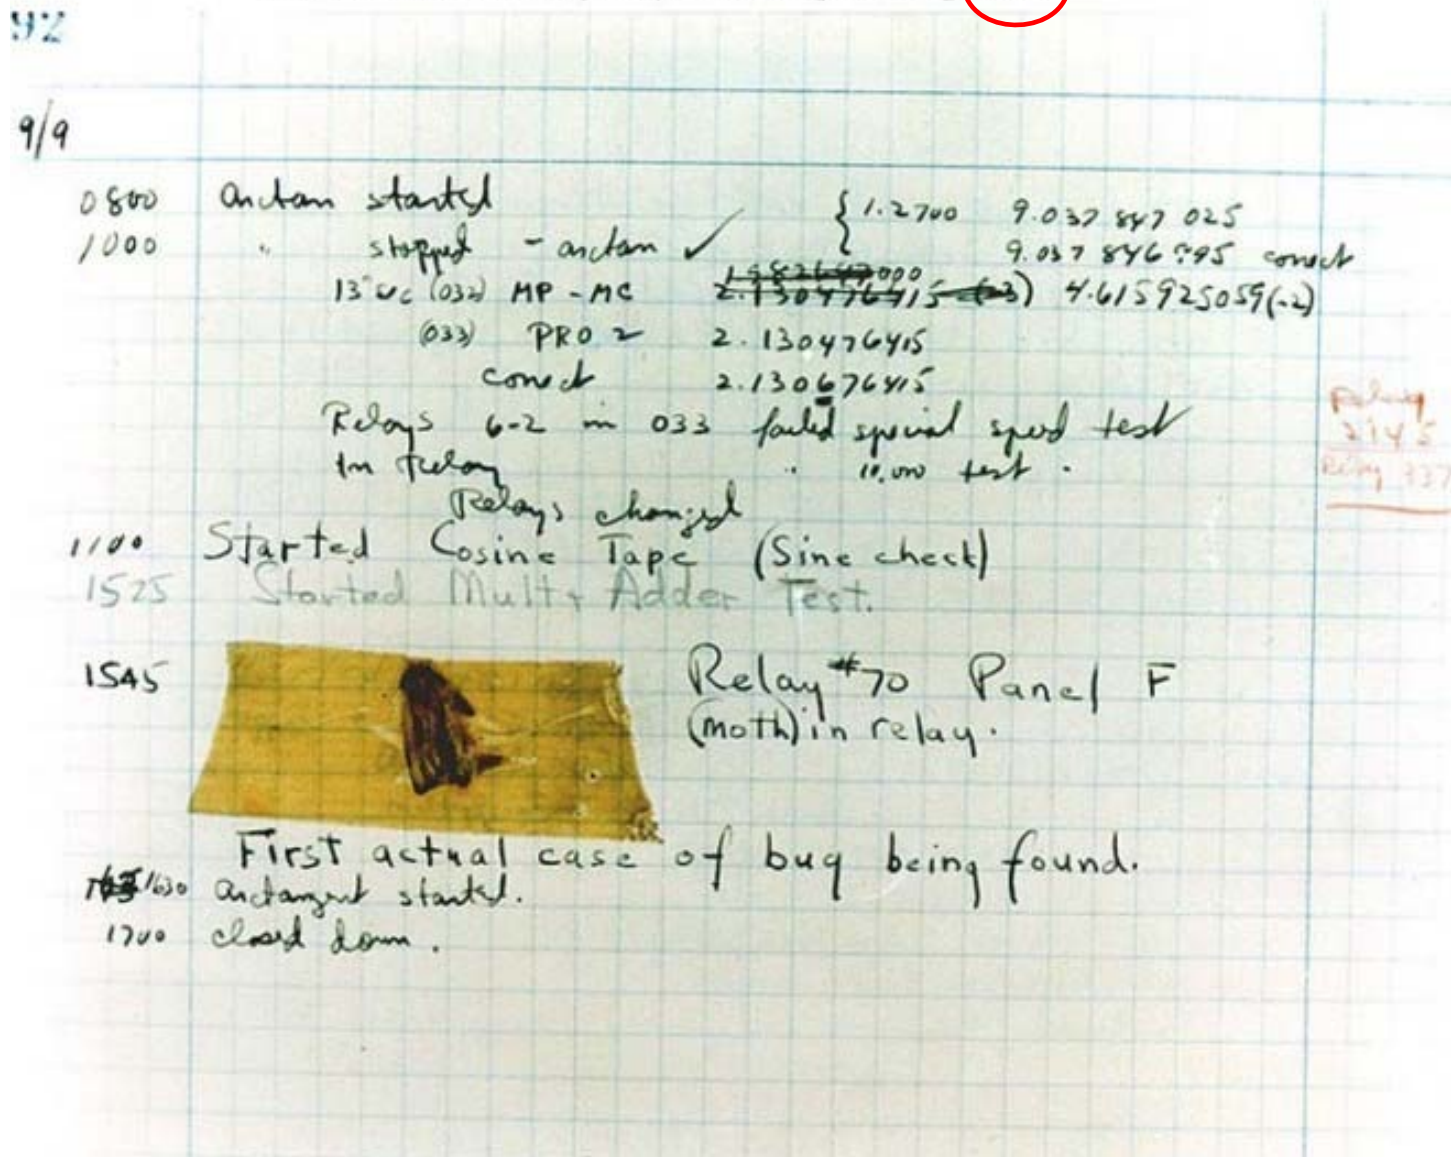 92
9/9
0800 arctan started { 1.2700 9.037 847 025
1000 " stopped - arctan ✓ 9.037 846 795 correct
13"uc (032) MP - MC 2.130476415 (-3) 4.615925059(-2)
(033) PRO 2 2.130476415
correct 2.130676415
Relays 6-2 in 033 failed special speed test
In Relay " 10,000 test .
Relays changed
1100 Started Cosine Tape (Sine check)
1525 Started Mult+ Adder Test.
1545 Relay #70 Panel F
(moth) in relay.
First actual case of bug being found.
1630 arctangent started.
1700 closed down.
Relay
2145
Relay 337